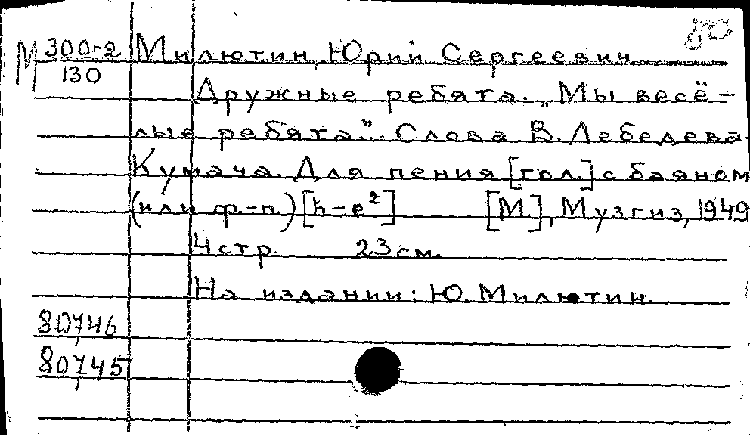 М 300-2 Милютин, Юрий Сергеевич.
130
Дружные ребята. „Мы весё-
лые ребята". Слова В. Лебедева
Кумача. Для пения [гол.] с баяном
(или ф-п.) [h-e²] [М.], Музгиз, 1949
4 стр. 23 см.
На издании: Ю. Милютин.
80746
80745